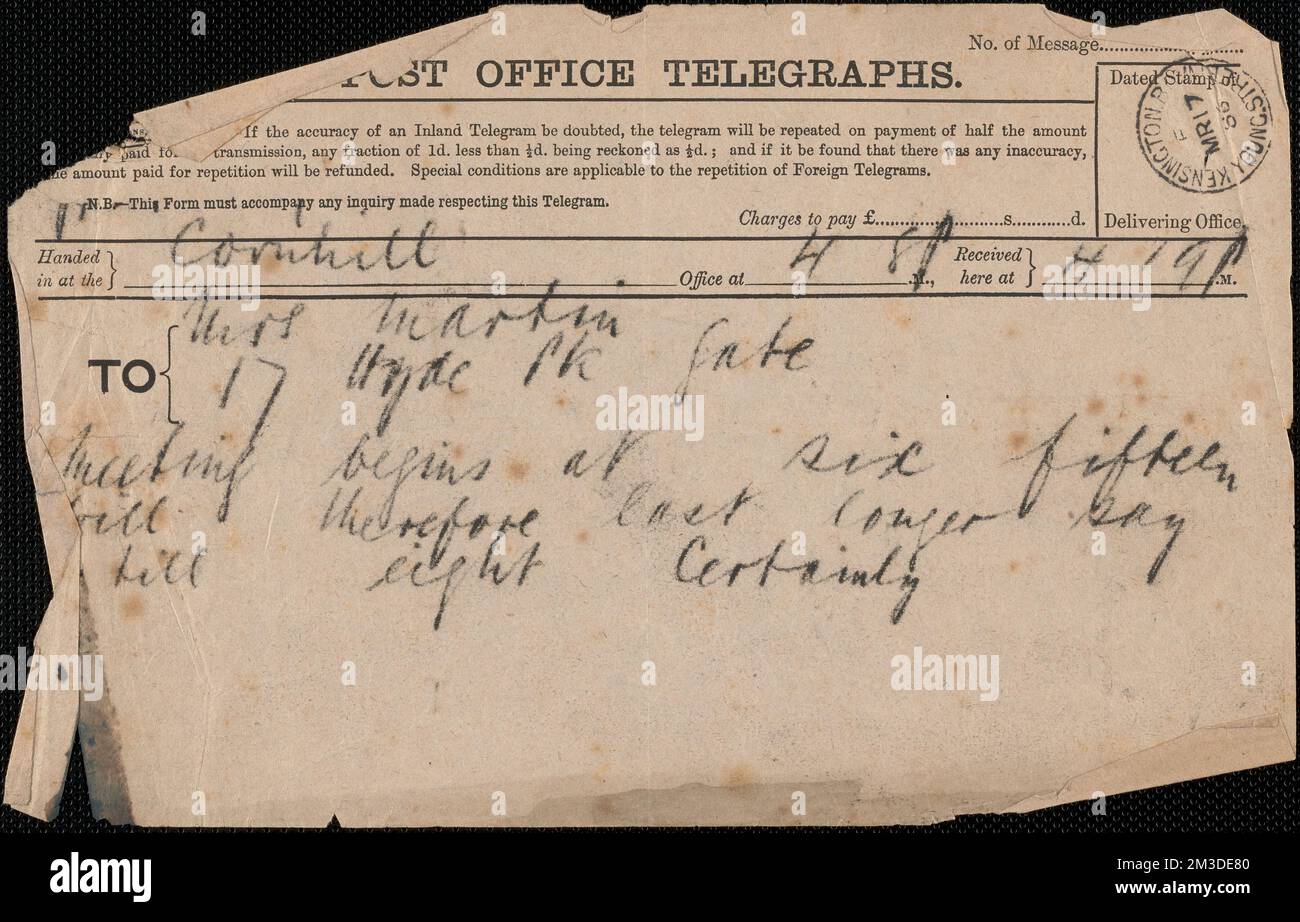 No. of Message
POST OFFICE TELEGRAPHS.
Dated Stamp of
If the accuracy of an Inland Telegram be doubted, the telegram will be repeated on payment of half the amount
paid for transmission, any fraction of 1d. less than ½d. being reckoned as ½d.; and if it be found that there was any inaccuracy,
the amount paid for repetition will be refunded. Special conditions are applicable to the repetition of Foreign Telegrams.
N.B.—This Form must accompany any inquiry made respecting this Telegram.
Charges to pay £ s d.
Delivering Office.
KENSINGTON
MR 17
Handed in at the } Cornhill Office at 4 8 P .M., Received here at } 4 19 P .M.
TO { Mrs Martin
17 Hyde Pk Gate
Meeting begins at six fifteen
will therefore last longer say
till eight Certainly
alamy
Image ID: 2M3DE80
www.alamy.com